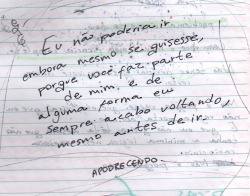 Eu não poderia ir
embora mesmo se quisesse,
porque você faz parte
de mim. e de
alguma forma eu
sempre acabo voltando,
mesmo antes de ir.
APODRECENDO.